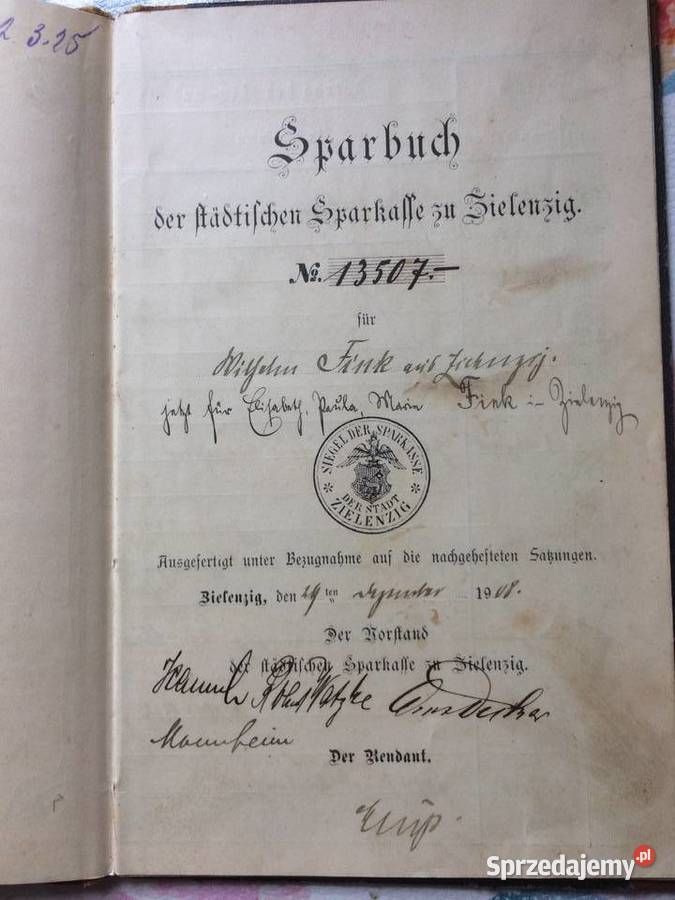 2. 3. 25
Sparbuch
der städtischen Sparkasse zu Zielenzig.
No. 13507.-
für
Wilhelm Fink aus Zielenzig.
jetzt für Elisabeth, Paula, Marie Fink in Zielenzig
SIEGEL DER SPARKASSE
DER STADT
ZIELENZIG
Ausgefertigt unter Bezugnahme auf die nachgehefteten Satzungen.
Zielenzig, den 29ten Dezember 1908.
Der Vorstand
der städtischen Sparkasse zu Zielenzig.
Mannheim
Der Rendant.
Sprzedajemy.pl